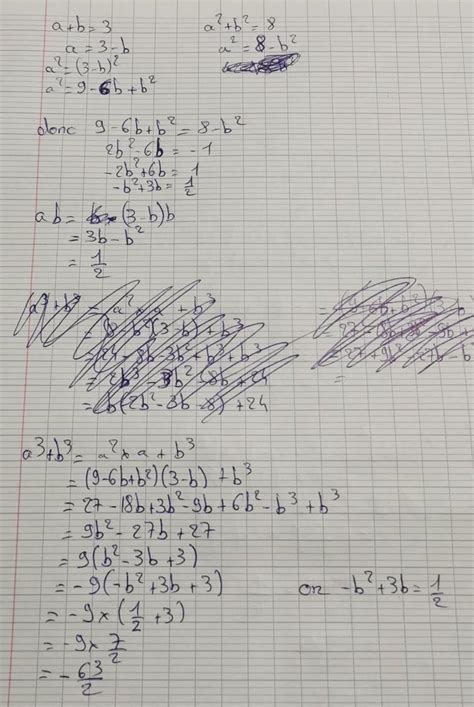 a+b=3
a=3-b
a²=(3-b)²
a²=9-6b+b²
a²+b²=8
a²=8-b²
donc 9-6b+b²=8-b²
2b²-6b=-1
-2b²+6b=1
-b²+3b=1/2
ab=(3-b)b
=3b-b²
=1/2
a³+b³=a²×a+b³
=(9-6b+b²)(3-b)+b³
=27-18b+3b²-9b+6b²-b³+b³
=9b²-27b+27
=9(b²-3b+3)
=-9(-b²+3b+3) or -b²+3b=1/2
=-9×(1/2+3)
=-9×7/2
=-63/2